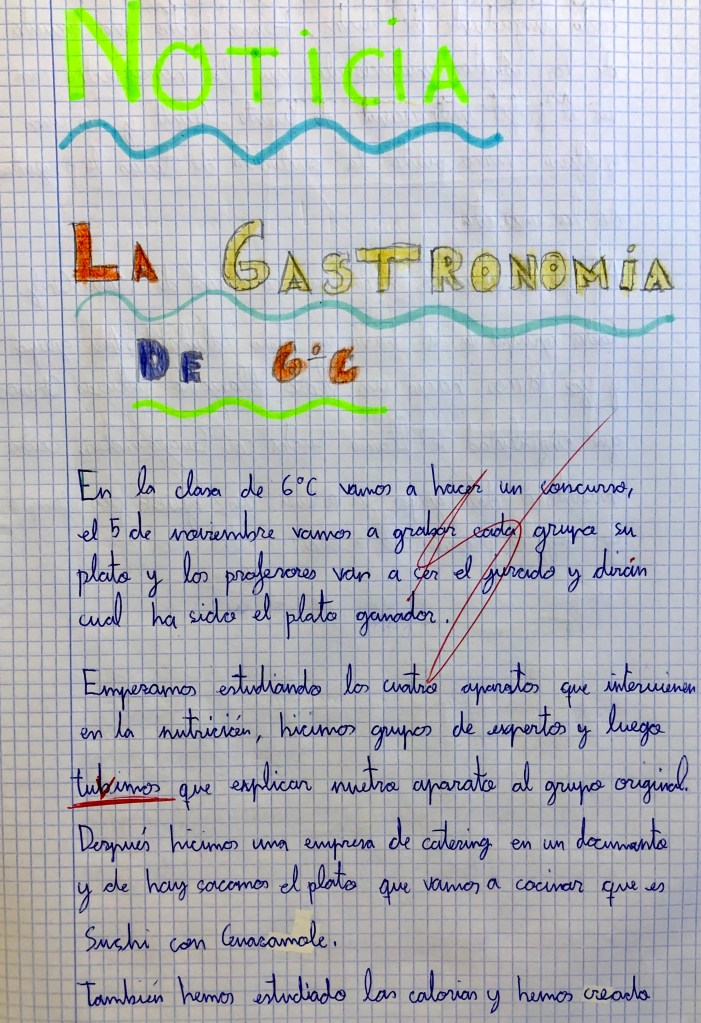 NOTICIA
LA GASTRONOMÍA
DE 6ºC
En la clase de 6ºC vamos a hacer un concurso,
el 5 de noviembre vamos a grabar cada grupo su
plato y los profesores van a ser el jurado y dirán
cual ha sido el plato ganador.
Empezamos estudiando los cuatro aparatos que intervienen
en la nutrición, hicimos grupos de expertos y luego
tubimos que explicar nuetro aparato al grupo original.
Después hicimos una empresa de catering en un documento
y de hay sacamos el plato que vamos a cocinar que es
Sushi con Guacamole.
También hemos estudiado las calorias y hemos creado